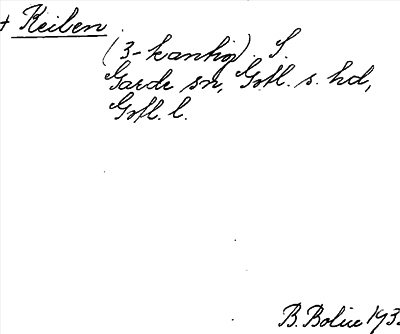 + Keilen
(3-kantig) S.
Garde sn, Gotl. s. hd,
Gotl. l.
B. Bolin 193